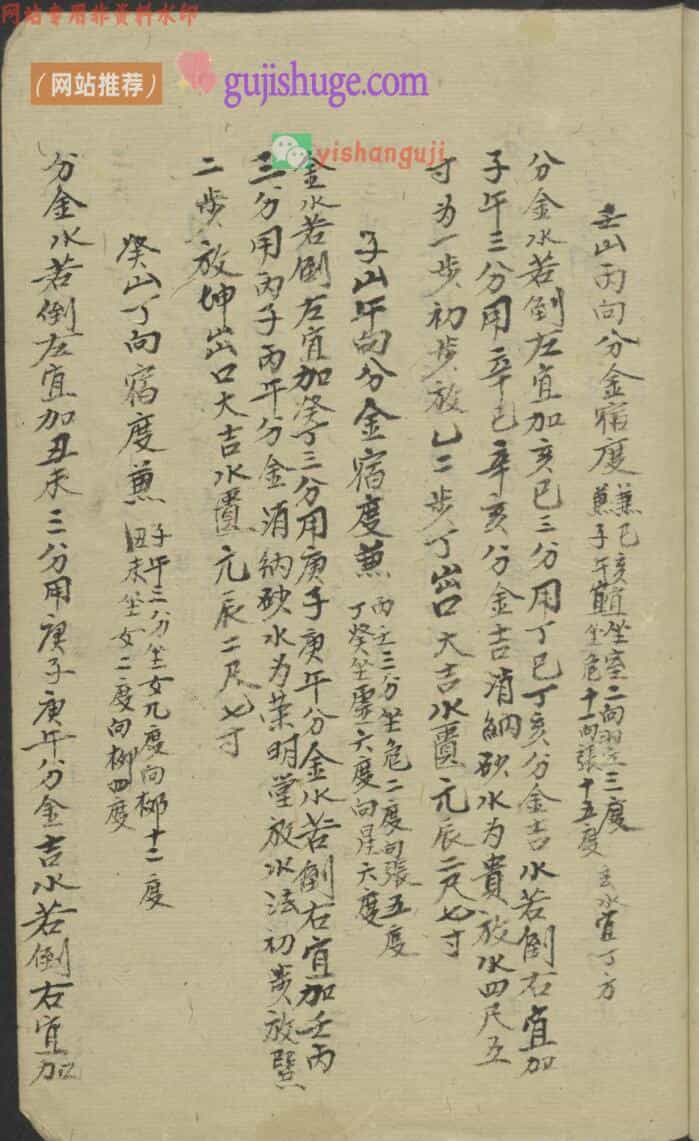 网站专用非资料水印
（网站推荐）
gujishuge.com
yishanguji
壬山丙向分金宿度
兼巳亥宜坐室二向翌三度
兼子午宜坐危十一向張十五度
去水宜丁方
分金水若倒左宜加亥巳三分用丁巳丁亥分金吉水若倒右宜加
子午三分用辛巳辛亥分金吉消納砂水为貴放水四尺五
寸为一步初步放乙二步丁出口大吉水匱元辰二尺七寸
子山午向分金宿度兼
丙壬三分坐危二度向張五度
丁癸坐虛六度向星六度
金水若倒左宜加癸丁三分用庚子庚午分金水若倒右宜加壬丙
三分用丙子丙午分金消納砂水为荣明堂放水法初步放巽
二步放坤出口大吉水匱元辰二尺七寸
癸山丁向宿度兼
子午三分坐女九度向柳十二度
丑未坐女二度向柳四度
分金水若倒左宜加丑未三分用庚子庚午分金吉水若倒右宜加